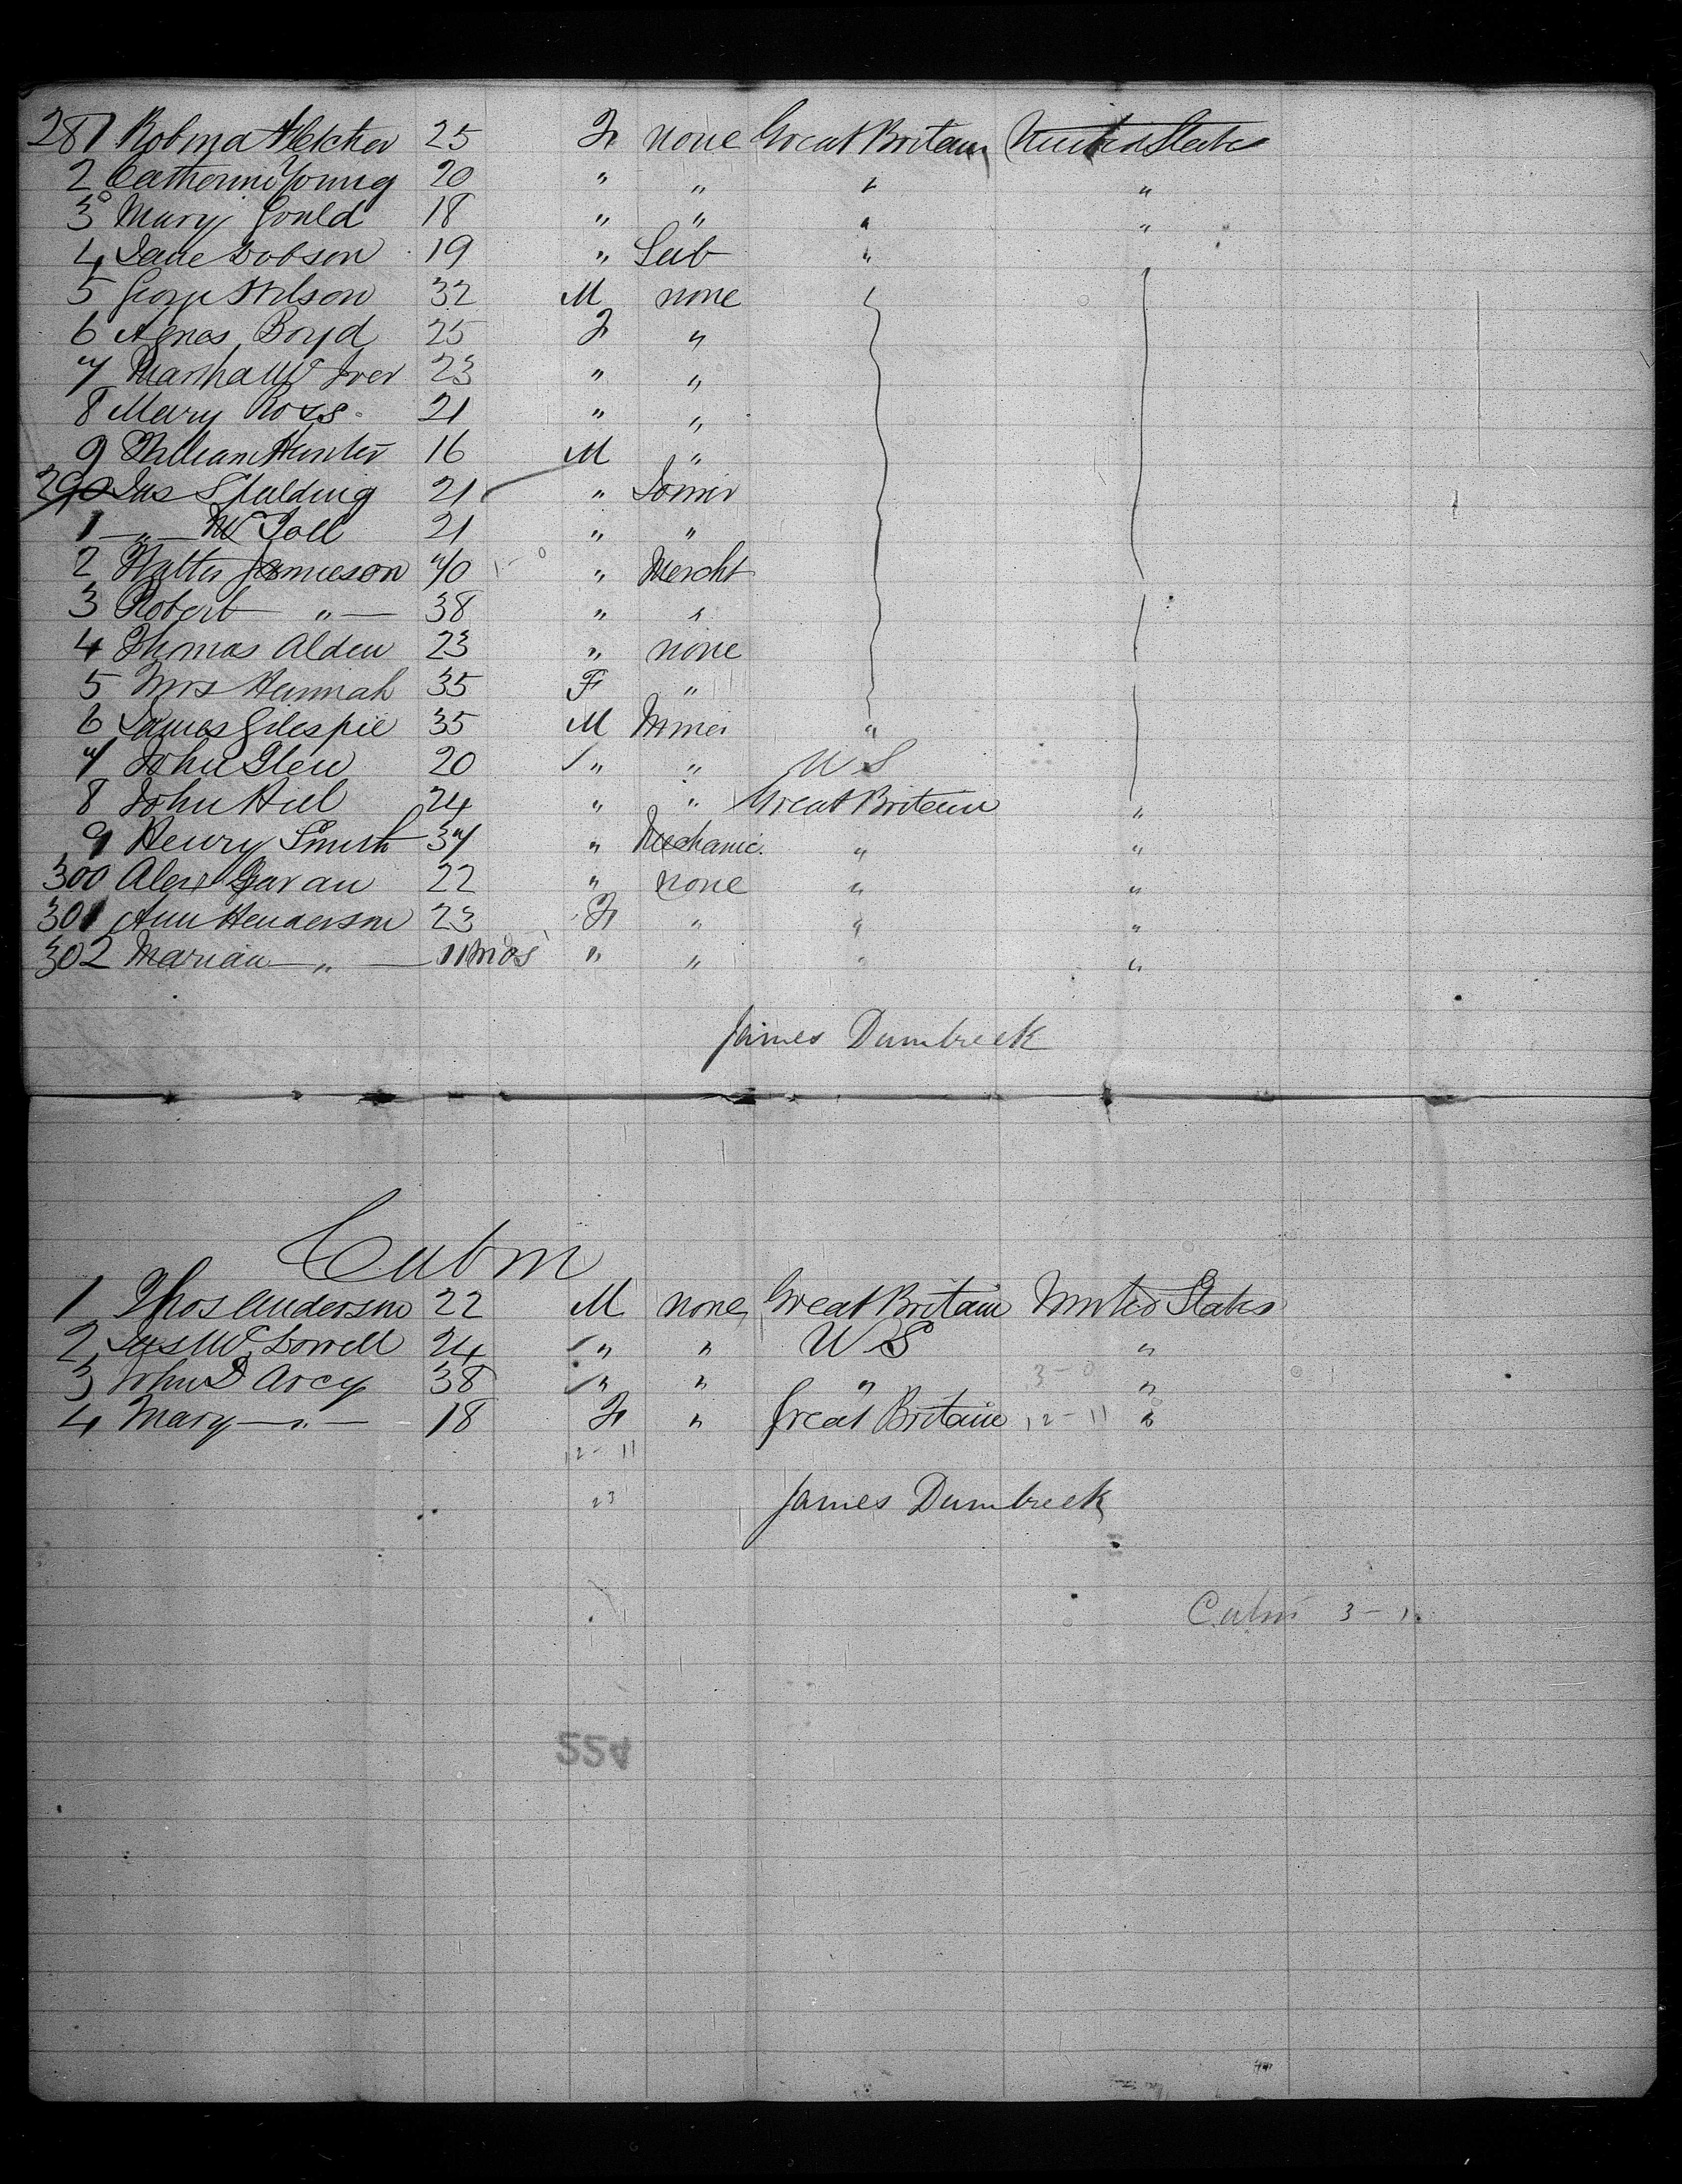 281 Robina Fletcher 25 F none Great Britain United States
2 Catherine Young 20 " " " "
3 Mary Gould 18 " " " "
4 Jane Dobson 19 " Lab "
5 George Wilson 32 M none
6 Agnes Boyd 25 F "
7 Martha McIver 23 " "
8 Mary Ross 21 " "
9 William Hunter 16 M "
290 Jas Spalding 21 " Joiner
1 " 21 " "
2 Walter Jamieson 40 " Mercht
3 Robert " 38 " "
4 Thomas Alden 23 " none
5 Mrs Hannah 35 F "
6 James Gilespie 35 M Miner "
7 John Glen 20 " " U S
8 John Hill 24 " " Great Britain "
9 Henry Smith 37 " Mechanic " "
300 Alex 22 " none " "
301 Ann Henderson 23 F " " "
302 Marian " 11 mos " " " "
James Dumbreck
Cabin
1 Thos Anderson 22 M none Great Britain United States
2 Jas McDowell 24 " " U S "
3 John D Arcy 38 " " " 3-0 "
4 Mary " 18 F " Great Britain 12-11 "
12-11
23 James Dumbreck
Cabin 3-1
554